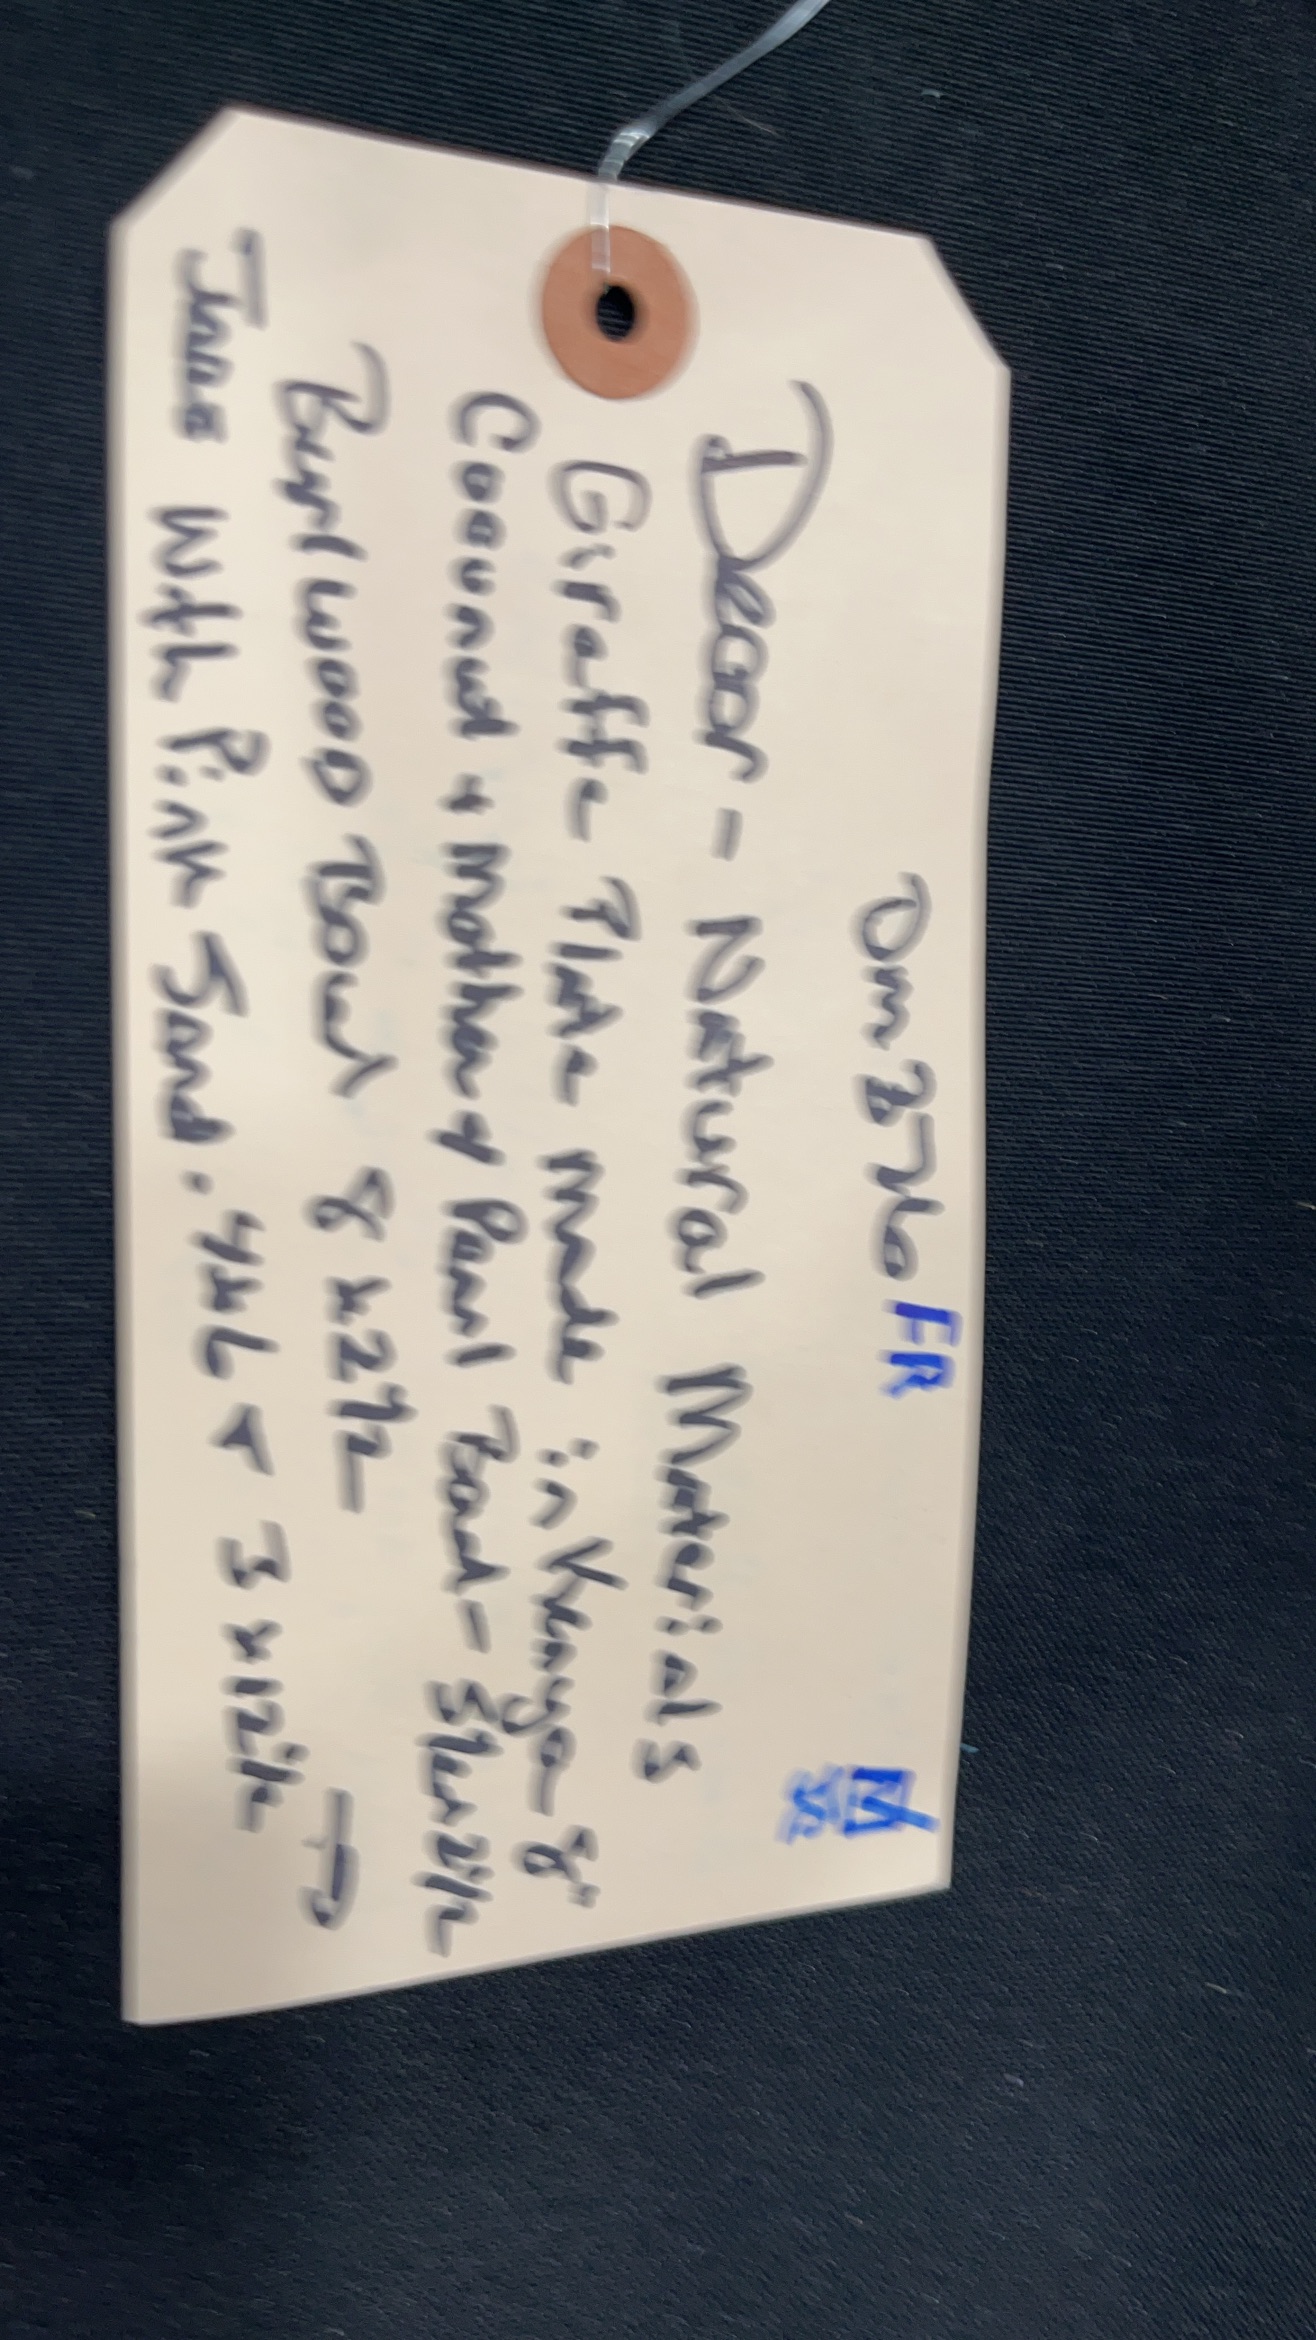 Decor - Natural Materials
Giraffe Plate made in Kenya - 8"
Coconut + Mother of Pearl Bowl -
Burlwood Bowl 8 x 2 1/2
Jars with Pink Sand. 4x6 + 3 x
FR